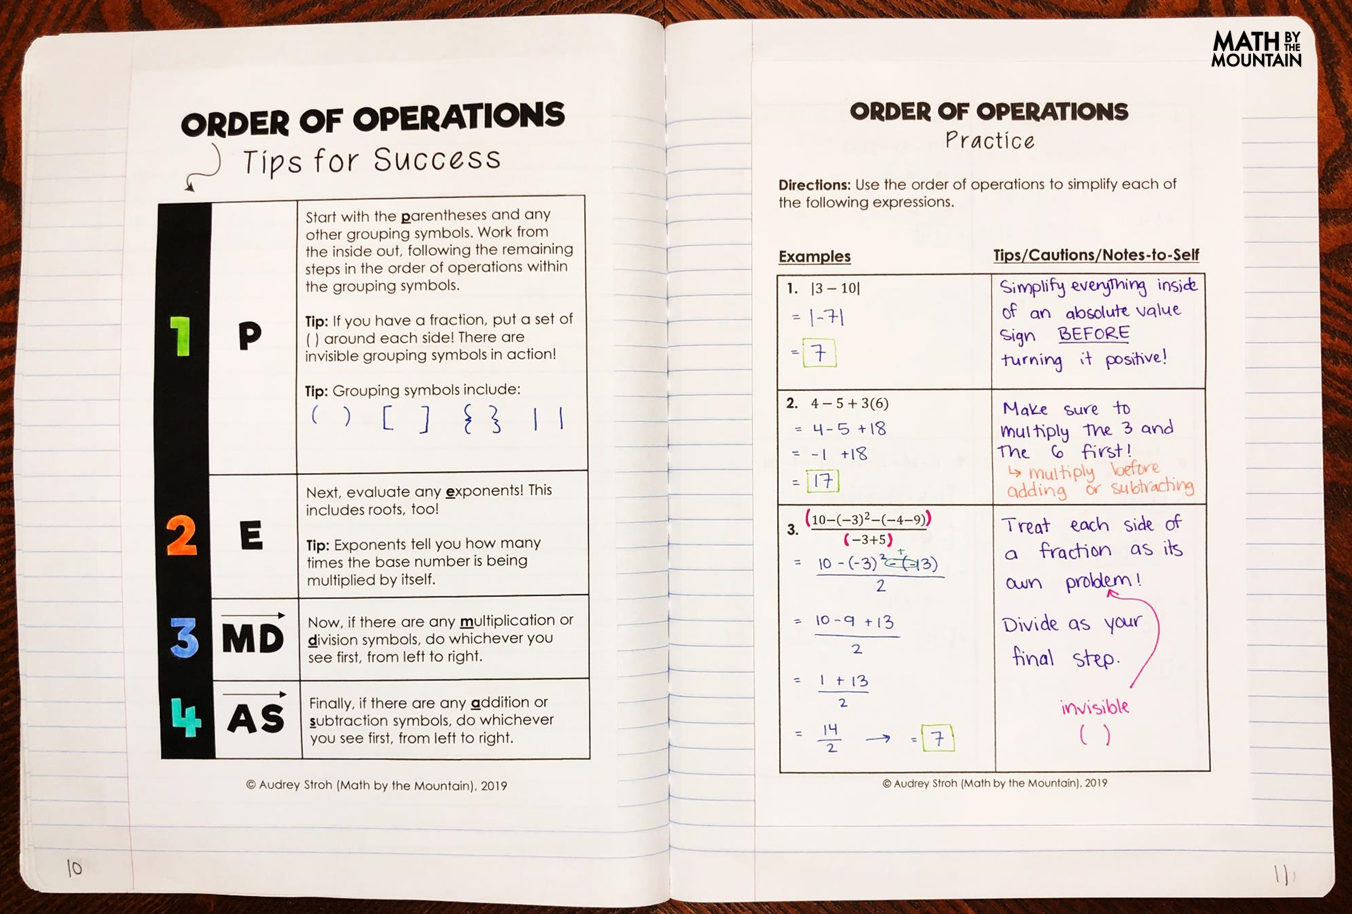 MATH BY THE MOUNTAIN
ORDER OF OPERATIONS
Tips for Success
1
P
Start with the parentheses and any
other grouping symbols. Work from
the inside out, following the remaining
steps in the order of operations within
the grouping symbols.
Tip: If you have a fraction, put a set of
( ) around each side! There are
invisible grouping symbols in action!
Tip: Grouping symbols include:
( ) [ ] { } | |
2
E
Next, evaluate any exponents! This
includes roots, too!
Tip: Exponents tell you how many
times the base number is being
multiplied by itself.
3
MD
Now, if there are any multiplication or
division symbols, do whichever you
see first, from left to right.
4
AS
Finally, if there are any addition or
subtraction symbols, do whichever
you see first, from left to right.
© Audrey Stroh (Math by the Mountain), 2019
10
ORDER OF OPERATIONS
Practice
Directions: Use the order of operations to simplify each of
the following expressions.
Examples
Tips/Cautions/Notes-to-Self
1. |3 − 10|
= |-7|
= 7
Simplify everything inside
of an absolute value
sign BEFORE
turning it positive!
2. 4 − 5 + 3(6)
= 4-5 +18
= -1 +18
= 17
Make sure to
multiply the 3 and
the 6 first!
↳ multiply before
adding or subtracting
3.
(10−(−3)²−(−4−9))
(−3+5)
= 10 -(-3)² - (-13)
+
2
= 10 -9 +13
2
= 1 + 13
2
= 14
2
→ = 7
Treat each side of
a fraction as its
own problem!
Divide as your
final step.
invisible
( )
© Audrey Stroh (Math by the Mountain), 2019
11